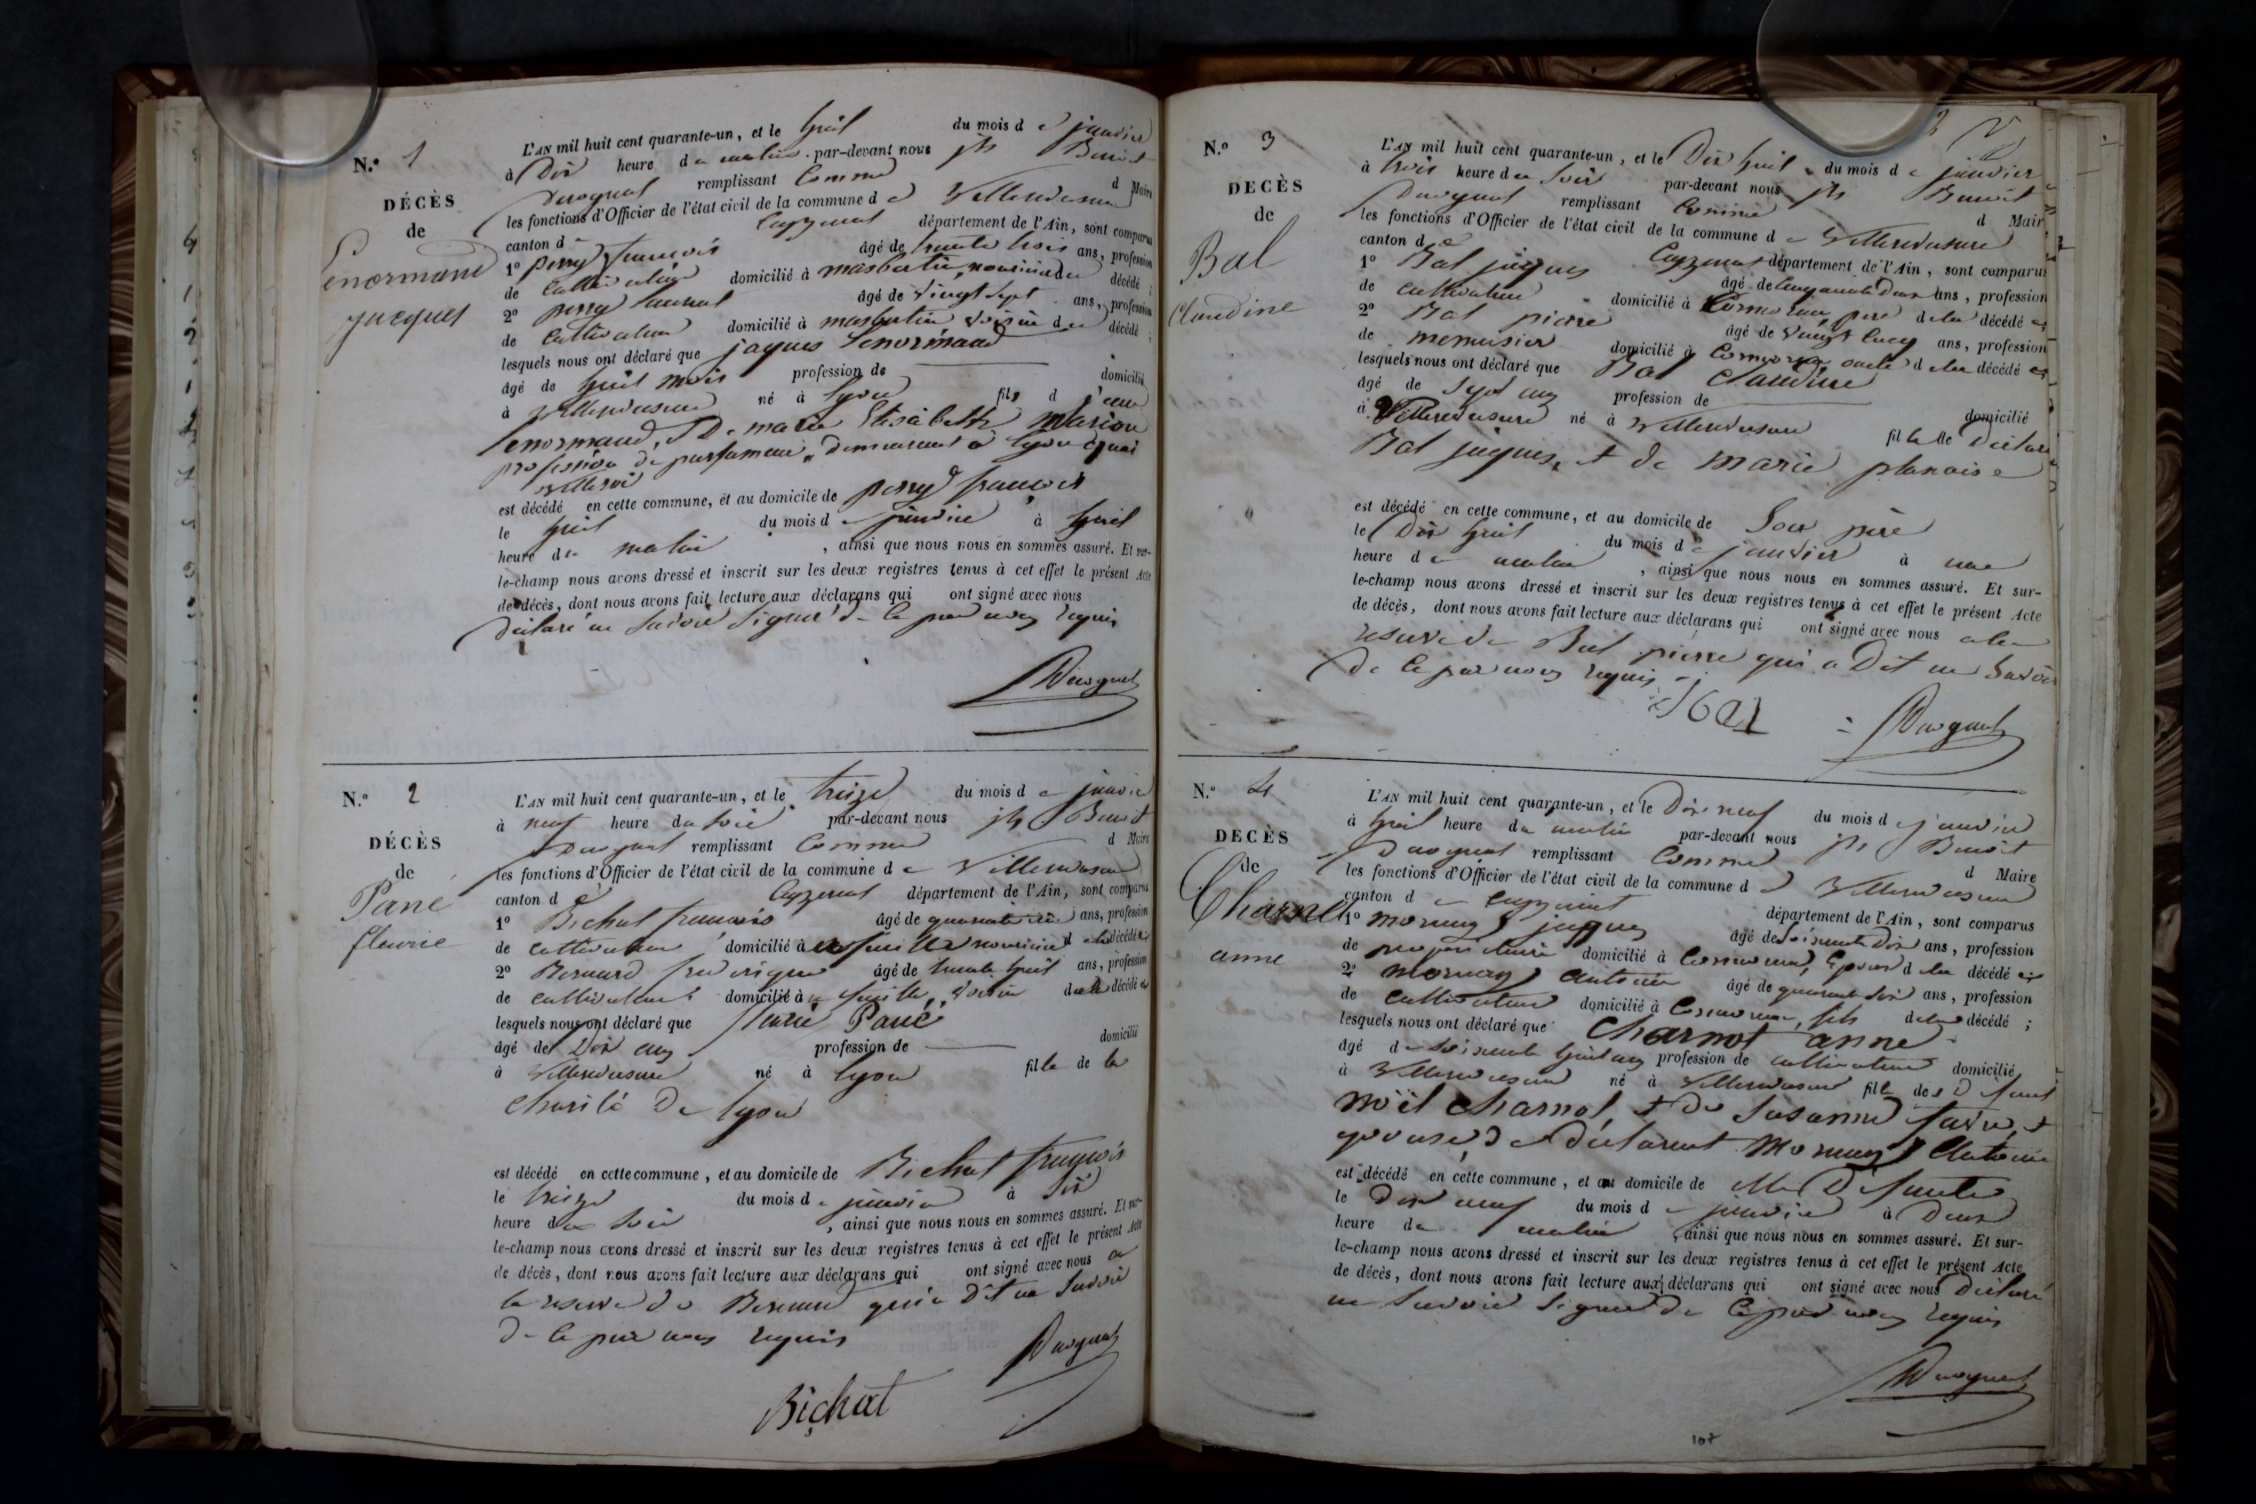 N.° 1
DÉCÈS
de
Lenormand
jacques
L'AN mil huit cent quarante-un, et le huit du mois d e janvier
à Dix heure du matin par-devant nous jh Benoit
remplissant Comme d Maire
les fonctions d'Officier de l'état civil de la commune d e Villereversure
canton d e Ceyzeriat département de l'Ain, sont comparus
1° perry françois âgé de trente trois ans, profession
de Cultivateur domicilié à nourricier du décédé ;
2° perry laurent âgé de Vingt Sept ans, profession
de Cultivateur domicilié à voisin du décédé ;
lesquels nous ont déclaré que jaques Lenormand
âgé de huit mois profession de domicilié
à Villereversure né à lyon fils d
lenormand, & De marie Elisabeth marion
profession de parfumeur, Demeurant à lyon quai
villeroi
est décédé en cette commune, et au domicile de perry françois
le huit du mois d e janvier à huit
heure du matin, ainsi que nous nous en sommes assuré. Et sur-
le-champ nous avons dressé et inscrit sur les deux registres tenus à cet effet le présent Acte
de décès, dont nous avons fait lecture aux déclarans qui ont signé avec nous
Déclaré ne Savoir Signer De Ce par nous requis
N.° 2
DÉCÈS
de
Pané
fleurie
L'AN mil huit cent quarante-un, et le treize du mois d e janvier
à neuf heure du soir par-devant nous jh Benoit
remplissant Comme d Maire
les fonctions d'Officier de l'état civil de la commune d e Villereversure
canton d e Ceyzeriat département de l'Ain, sont comparus
1° Bichat françois âgé de quarante ans, profession
de cultivateur domicilié à nourricier d e la décédée
2° Bernard frederique âgé de trente huit ans, profession
de cultivateur domicilié à voisin de la décédée
lesquels nous ont déclaré que fleurie Pané
âgé de Dix ans profession de domicilié
à Villereversure né à lyon fille de la
Charité De lyon
est décédé en cette commune, et au domicile de Bichat françois
le treize du mois d e janvier à Six
heure du soir, ainsi que nous nous en sommes assuré. Et sur-
le-champ nous avons dressé et inscrit sur les deux registres tenus à cet effet le présent Acte
de décès, dont nous avons fait lecture aux déclarans qui ont signé avec nous a
la reserve de Bernard qui a Dit ne Savoir
De Ce par nous requis
Bichat
N.° 3
DECÈS
de
Bal
Claudine
L'AN mil huit cent quarante-un, et le Dix huit du mois d e janvier
à trois heure du Soir par-devant nous jh Benoit
remplissant Comme d Maire
les fonctions d'Officier de l'état civil de la commune d e Villereversure
canton d e Ceyzeriat département de l'Ain, sont comparus
1° Bal jaques âgé de Cinquante Deux ans, profession
de cultivateur domicilié à Cormoreau, père de la décédée
2° Bal pierre âgé de Vingt Cinq ans, profession
de menuisier domicilié à oncle de la décédée
lesquels nous ont déclaré que Bal Claudine
âgé de Sept ans profession de domicilié
à Villereversure né à Villereversure fille de
Bal jaques, & de marie planaise
est décédé en cette commune, et au domicile de Son père
le Dix huit du mois d e janvier à une
heure du matin, ainsi que nous nous en sommes assuré. Et sur-
le-champ nous avons dressé et inscrit sur les deux registres tenus à cet effet le présent Acte
de décès, dont nous avons fait lecture aux déclarans qui ont signé avec nous a la
reserve de Bal pierre qui a Dit ne Savoir
De Ce par nous requis
N.° 4
DECÈS
de
Charnot
anne
L'AN mil huit cent quarante-un, et le Dix neuf du mois d e janvier
à huit heure du matin par-devant nous jh Benoit
remplissant Comme d Maire
les fonctions d'Officier de l'état civil de la commune d e Villereversure
canton d e Ceyzeriat département de l'Ain, sont comparus
1° mornay jaques âgé de Soixante Dix ans, profession
de propriétaire domicilié à époux de la décédée
2° mornay antoine âgé de quarante Six ans, profession
de Cultivateur domicilié à fils de la décédé ;
lesquels nous ont déclaré que Charnot anne
âgé de soixante huit ans profession de cultivateur domicilié
à Villereversure né à Villereversure fille des D funt
noël Charnot, & De Susanne favre, &
épouse De Déclarant Mornay Antoine
est décédé en cette commune, et au domicile de elle Défunte
le Dix neuf du mois d e janvier à Deux
heure du matin, ainsi que nous nous en sommes assuré. Et sur-
le-champ nous avons dressé et inscrit sur les deux registres tenus à cet effet le présent Acte
de décès, dont nous avons fait lecture aux déclarans qui ont signé avec nous Déclaré
ne Savoir Signer De Ce par nous requis
107